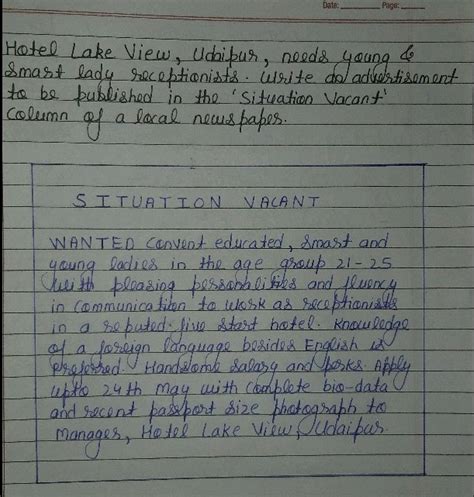 Date: Page:
Hotel Lake View, Udaipur, needs young &
Smart lady receptionists. Write an advertisement
to be published in the 'Situation Vacant'
Column of a local newspaper.
SITUATION VACANT
WANTED Convent educated, Smart and
young ladies in the age group 21-25
with pleasing personalities and fluency
in communication to work as receptionists
in a reputed five start hotel. Knowledge
of a foreign language besides English is
preferred. Handsome Salary and perks. Apply
upto 24th May with Complete bio-data
and recent passport size photograph to
Manager, Hotel Lake View, Udaipur.